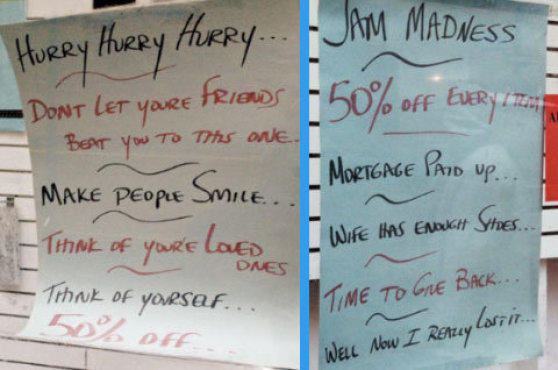 HURRY HURRY HURRY...
DONT LET YOURE FRIENDS
BEAT YOU TO THIS ONE..
MAKE PEOPLE SMILE...
THINK OF YOUR'E LOVED
ONES
THINK OF YOURSELF....
50% OFF....
JAM MADNESS
50% OFF EVERY ITEM
MORTGAGE PAID UP...
WIFE HAS ENOUGH SHOES...
TIME TO GIVE BACK...
WELL NOW I REALLY LOST IT...